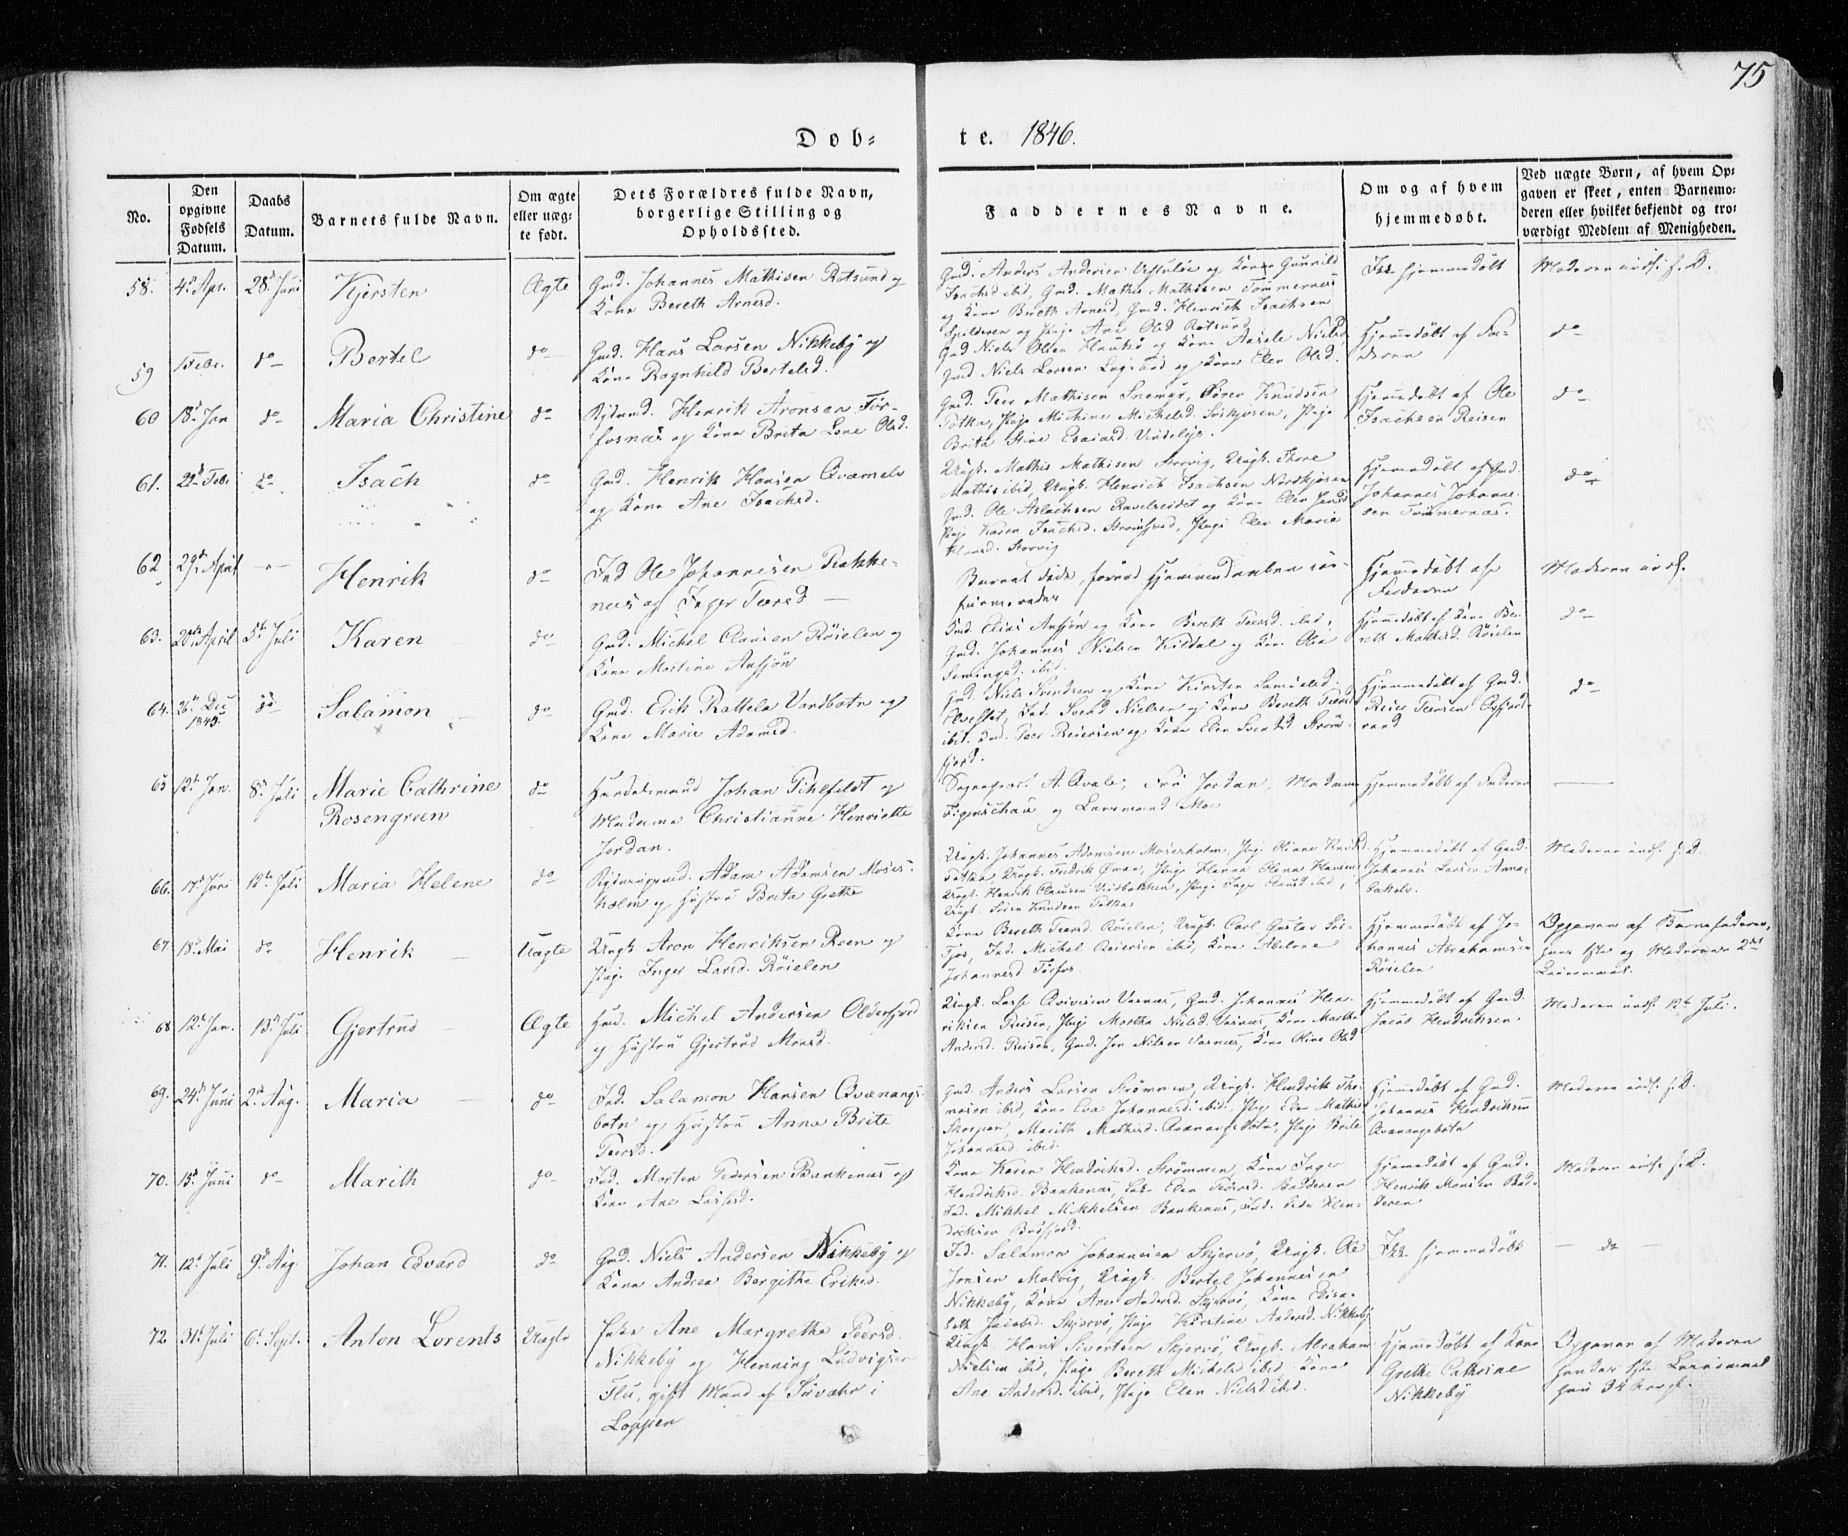 75
Dob=
te. 1846.
No.
Den opgivne Fødsels Datum.
Daabs Datum.
Barnets fulde Navn.
Om ægte eller uægte født.
Dets Forældres fulde Navn, borgerlige Stilling og Opholdssted.
Faddernes Navne.
Om og af hvem hjemmedøbt.
Ved uægte Børn, af hvem Opgaven er skeet, enten Barnemoderen eller hvilket bekjendt og troværdigt Medlem af Menigheden.
58. 4d Apr. 28d Juni Kjersten Ægte
Gmd. Johannes Mathisen Rotsund og
Kone Bereth Arnesd.
Gmd. Anders Andersen og Kone Gunnild
Isachsd ibid, Gmd. Mathis Mathisen Tømmernæs
og Kone Bereth Arnesd, Gmd. Henrich Isachsen
Spilderen og Pige Ane Olsd Rotsund
Ikke hjemmedøbt
Moderen indl. s. D.
59 Febr. do Bertel do
Gmd. Hans Larsen Nikkeby og
Kone Ragnhild Bertelsd.
Gmd Niels Olsen Haukø og Kone Nielsd,
Gmd Niels Larsen og Kone Elen Olsd.
Hjemmedøbt af Fa-
deren
do
60 18d Jan do Maria Christine do
Henrik Aronsen
og Kone Brita Lene Olsd.
Gmd. Peer Mathisen Søren Knudsen
Potka, Pige Michine Michelsd. Pige
Brita Stine Esaiasd.
Hjemmedøbt af Ole
Isachsen Reisen
do
61. 22d Febr do Isach do
Gmd. Henrik Hansen Qvamelv
og Kone Ane Isachsd.
Ungk. Mathis Mathisen Storvig, Ungk. Thore
Mathis ibid, Ungk. Henrich Isachsen Nordkjosen
Gmd. Ole Aslachsen Ravelseidet og Kone Elen
Pige Karen Isachsd. Pige Elen Marie
Hansd. Storvig
Hjemmedøbt af Gmd.
Johannes Johanne-
sen Tømmernæs.
do
62 29d April Henrik do
Ind Ole Johannesen Bakke-
næs og Inger Peersd
Barnet døde, førend Hjemmedaaben
Hjemmedøbt af
Faderen
Moderen indl.
63. 20de April 5te Juli Karen do
Gmd. Michel Clausen Røielen og
Kone Martine Ansjøn
Gmd. Elias Ansjøn og Kone Bereth Peersd. ibid,
Gmd. Johannes Nielsen Kildal og Kone Olea
ibid.
Hjemmedøbt af Kone Be-
reth Mathisd. Røielen
do
64. 26d Dec 1845 do Salamon do
Gmd. Erik Rattela Vandbotn og
Kone Marie Adamsd.
Gmd. Niels Svendsen og Kone Kirsten Samuelsd.
Ind. Svend Nielsen og Kone Bereth Peersd
ibid. Ind. Peer Reiersen og Kone Elen Svendsd. Strøm-
fjord.
Hjemmedøbt af Gmd.
Reier Peersen
do
65 12t Jan. 8d Juli Marie Cathrine
Rosengreen do
Handelsmand Johan Fihlfeldt og
Madame Christianne Henriette
Jordan.
Sogneprest A. Qvale, Fru Jordan, Madame
Figenschau og Lensmand Moe
Hjemmedøbt af Faderen
66. 17d Juni 12te Juli Maria Helene do
Adam Adamsen Moses-
holm og Hustru Brita Grethe
Ungk. Johannes Adamsen Mosesholm, Pige Oliane
Potka, Ungk. Fredrik Øvan, Pige Hanna Olena Hansen
Ungk. Henrik Clausen Vidbakken, Pige Inger Clausd ibid,
Ungk. Søren Knudsen Potka
Hjemmedøbt af Gmd.
Johannes Larsen
Moderen indl. s. D.
67 18d Mai do Henrik Uægte
Ungk Aron Henriksen Reen og
Pige Inger Larsd. Røielen
Kone Bereth Peersd. Røielen, Ungk. Carl Gustav
Ind. Michel Reiersen ibid, Kone Abelone
Johannesd.
Hjemmedøbt af Jo-
hannes Abrahamsen
Røielen
Opgaven af Barnefaderen,
hans 1ste og Moderens 2det
Leiermaal.
68 12te Jan. 13d Juli Gjertrud Ægte
Gmd. Michel Andersen Olderfjord
og Hustru Gjertrud Monsd.
Ungk. Lasse Qvivesen Vasnæs, Gmd. Johannes Hen-
riksen Reisen, Pige Martha Nielsd Vasnæs, Kone Martha
Andersd. Reisen, Gmd. Jon Nilsen Vasnæs, Kone Stine Olsd
Hjemmedøbt af Gmd.
Jacob Hendriksen.
Moderen indl. 12te Juli.
69. 24d Juni 2d Aug. Maria do
Ind. Salamon Hansen Qvænangs-
botn og Hustru Anna Brite
Peersd.
Gmd. Anders Larsen Strømmen, Ungk. Hendrik Tho-
masen ibid, Kone Eva Johannesd. ibid, Pige Elen Mathisd
Skorpen, Marith Mathisd. Qvænangsbotn, Pige Brite
Johannesd ibid.
Hjemmedøbt af Gmd.
Johannes Hendriksen
Qvænangsbotn
Moderen indl. s. D.
70. 15d Juni do Marith do
Ind. Morten Pedersen Bankenæs og
Kone Ane Larsd.
Kone Karen Hendriksd. Strømmen, Kone Inger
Hendriksd. Bankenæs, Enke Elen Peersd. Badderen
Ind. Mikkel Mikkelsen Bankenæs, Ind. Peder Hen-
driksen
Hjemmedøbt af Gmd.
Henrik Monsen Bad-
deren
Moderen indl. s. D.
71. 12t Juli 9d Aug. Johan Edvard do
Gmd. Niels Andersen Nikkeby og
Kone Andrea Bergithe Eriksd.
Ind. Salamon Johannesen Skjervø, Ungk. Ole
Jonsen Molvig, Ungk. Bertel Johannesen
Nikkeby, Kone Ane Andersd. Skjervø, Kone Elisa-
beth Jacobsd. Skjervø, Pige Kirstine Andersd. Nikkeby
Ikke hjemmedøbt
do
72 31t Juli 6t Sept. Anton Lorents Uægte
Enke Ane Margrethe Peersd
Nikkeby og Henning Ludvigsen
Flu, gift Mand af Sørvahr i
Loppen
Ungk. Hans Sivertsen Skjervø, Ungk. Abraham
Nielsen ibid, Pige Bereth Michelsd ibid, Kone
Ane Andersd. ibid, Pige Elen Nielsd ibid.
Hjemmedøbt af Kone
Grethe Cathrine
Nikkeby
Opgaven af Moderen
hendes 1ste Leiermaal